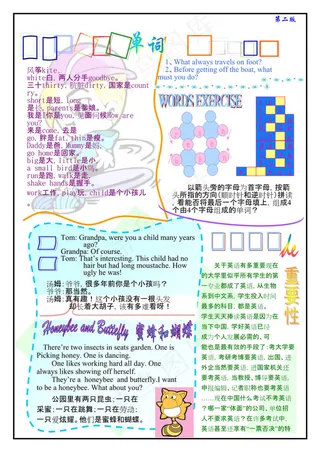 第二版
单词
风筝kite,
white白, 两人分手goodbye。
三十thirty, 肮脏dirty, 国家是country。
short是短, long
是长, parents是爹娘。
我是I你是you, 见面问候How are you?
来是come, 去是
go, 胖是fat, thin是瘦。
Daddy是爸, Mummy是妈,
go home是回家。
big是大, little是小,
a small bird是小鸟。
run是跑, walk是走,
shake hands是握手。
work工作, play玩, child是个小孩儿
1、What always travels on foot?
2、Before getting off the boat, what must you do?
WORDS EXERCISE
以箭头旁的字母为首字母, 按箭
头所指的方向(顺时针和逆时针)拼读
, 看能否将最后一个字母填上, 组成4
个由4个字母组成的单词?
Tom: Grandpa, were you a child many years ago?
Grandpa: Of course.
Tom: That's interesting. This child had no hair but had long moustache. How ugly he was!
汤姆: 爷爷, 很多年前你是个小孩吗?
爷爷: 那当然。
汤姆: 真有趣！这个小孩没有一根头发
却长着大胡子, 该有多难看呀！
Honeybee and Butterfly 蜜蜂和蝴蝶
There're two insects in seats garden. One is
Picking honey. One is dancing.
One likes working hard all day. One
always likes showing off herself.
They're a honeybee and butterfly.I want
to be a honeybee. What about you?
公园里有两只昆虫: 一只在
采蜜; 一只在跳舞; 一只在劳动;
一只爱炫耀。他们是蜜蜂和蝴蝶。
重要性
关于英语有多重要现在
的大学里似乎所有学生的第
一专业都成了英语, 从生物
系到中文系, 学生投入时间
最多的科目, 都是英语。
学生天天捧读英语是因为在
当下中国, 学好英语已经
成为个人发展必需的, 可
能也是最有效的手段了: 考大学要
英语, 考研考博要英语, 出国、进
外企当然要英语, 进国家机关还
要考英语, 当教授、博导要英语,
申报编辑、记者职称也要考英语
……现在中国什么考试不考英语
？哪一家“体面”的公司, 单位招
人不要求英语？在许多考试中,
英语甚至还享有“一票否决”的特